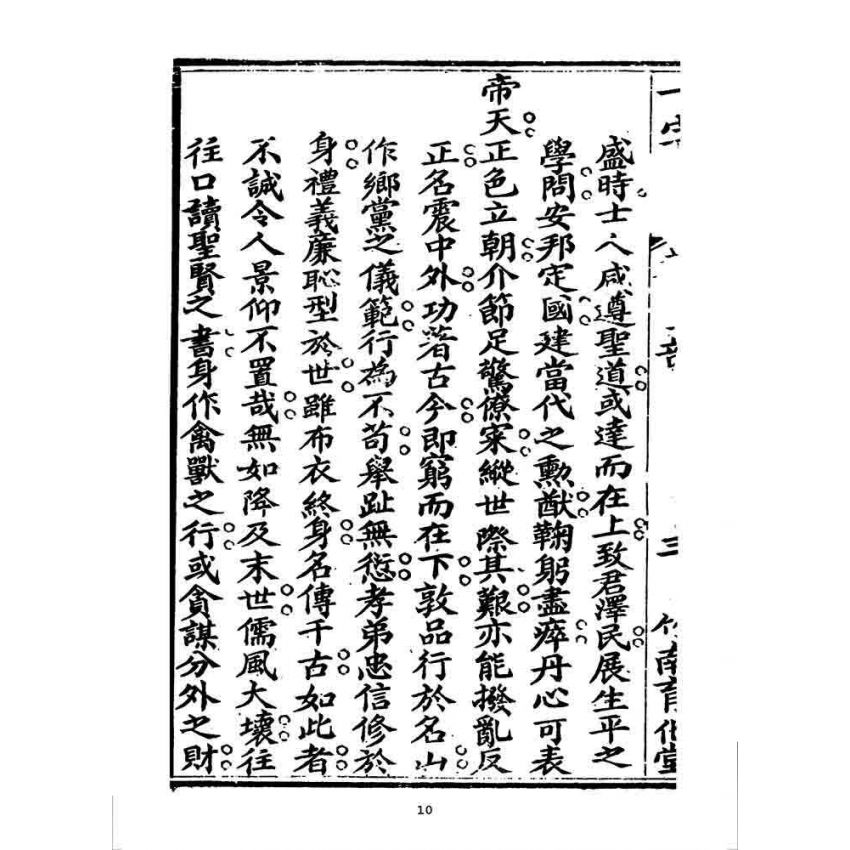 三
盛時士人咸遵聖道或達而在上致君澤民展生平之
學問安邦定國建當代之勳猷鞠躬盡瘁丹心可表
帝天正色立朝介節足驚僚寀縱世際其艱亦能撥亂反
正名震中外功著古今即窮而在下敦品行於名山
作鄉黨之儀範行為不苟舉趾無愆孝弟忠信修於
身禮義廉恥型於世雖布衣終身名傳千古如此者
不誠令人景仰不置哉無如降及末世儒風大壞往
往口讀聖賢之書身作禽獸之行或貪謀分外之財
10